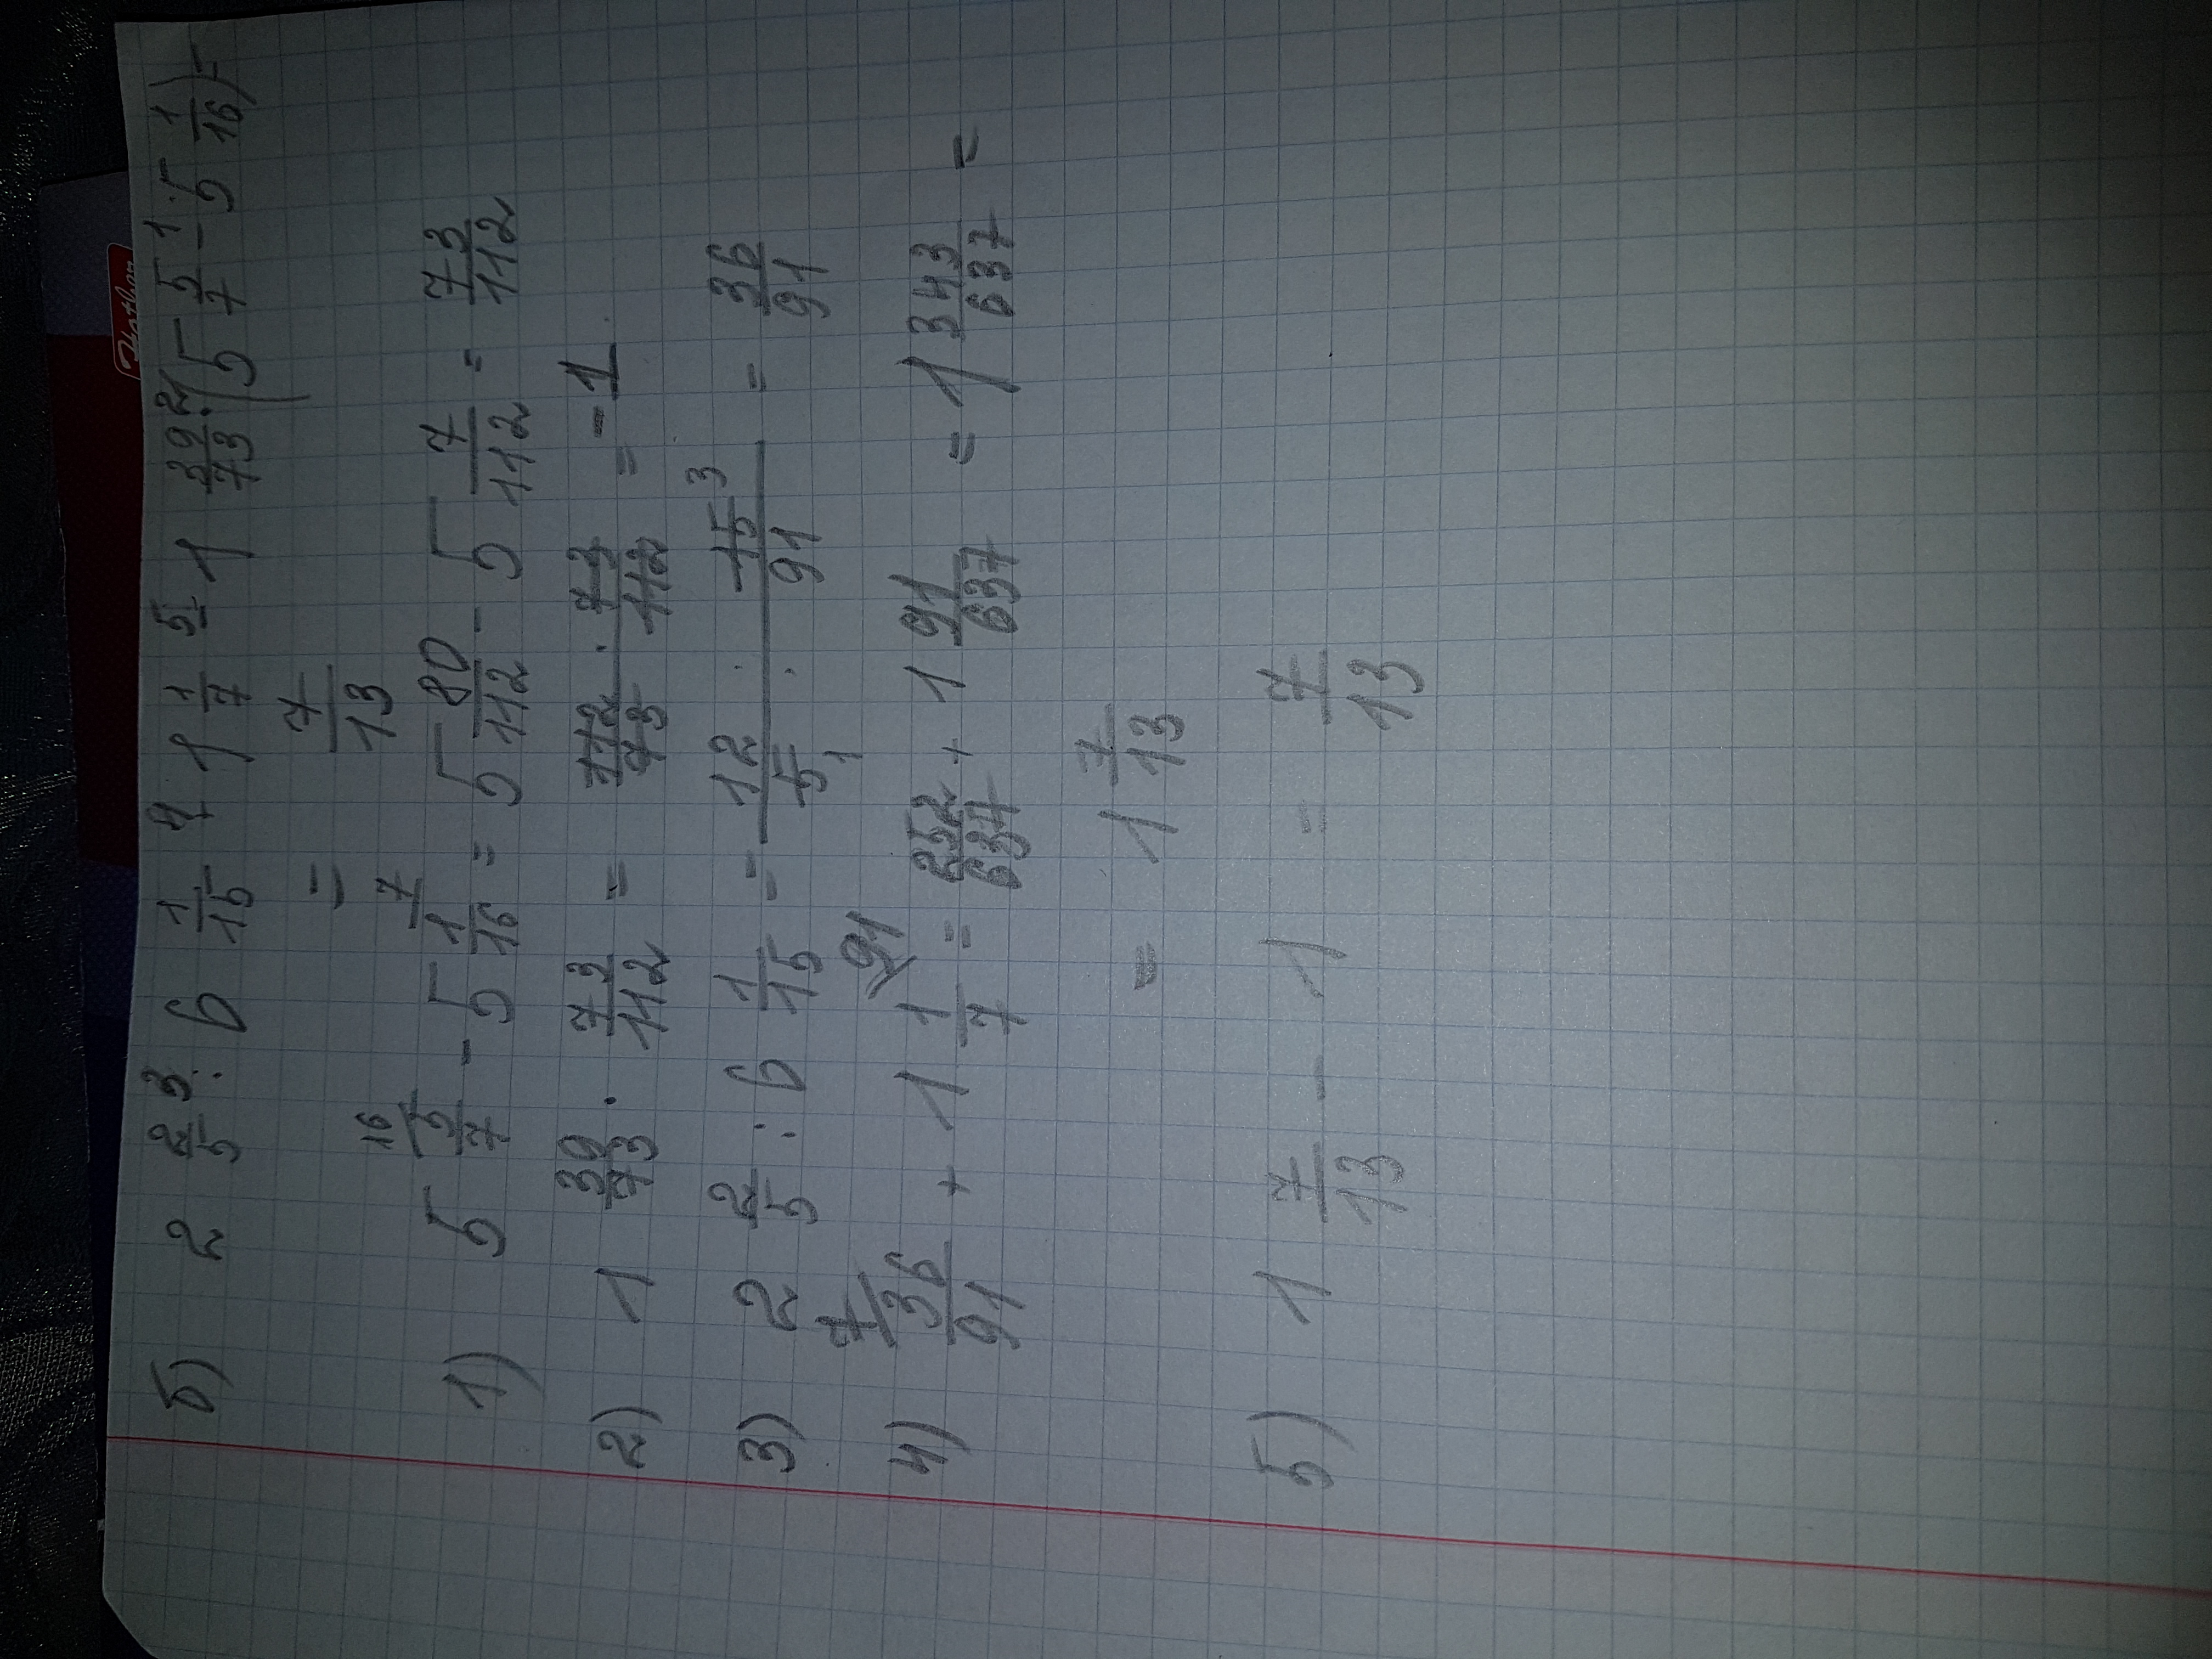 б) 2 2/5 :³ 6 1/15 +⁴ 1 1/7 -⁵ 1 39/73 ·² (5 5/7 -¹ 5 1/16) =
= 7/13
1) 5 5/7 - 5 1/16 = 5 80/112 - 5 7/112 = 73/112
16 7
2) 1 39/73 · 73/112 = 112/73 · 73/112 = 1
3) 2 2/5 : 6 1/15 = 12/5 · 15/91 = 36/91
3
1
4) 36/91 + 1 1/7 = 252/637 + 1 91/637 = 1 343/637 =
7 91
= 1 7/13
5) 1 7/13 - 1 = 7/13